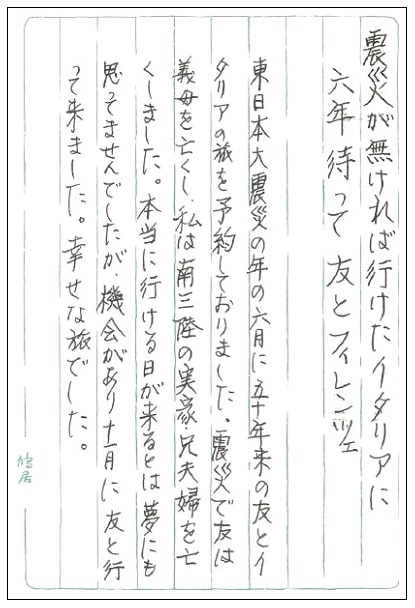 震災が無ければ行けたイタリアに
六年待って友とフィレンツェ
東日本大震災の年の六月に五十年来の友とイ
タリアの旅を予約しておりました。震災で友は
義母を亡くし、私は南三陸の実家、兄夫婦を亡
くしました。本当に行ける日が来るとは夢にも
思ってませんでしたが、機会があり十一月に友と行
って来ました。幸せな旅でした。
鳩居